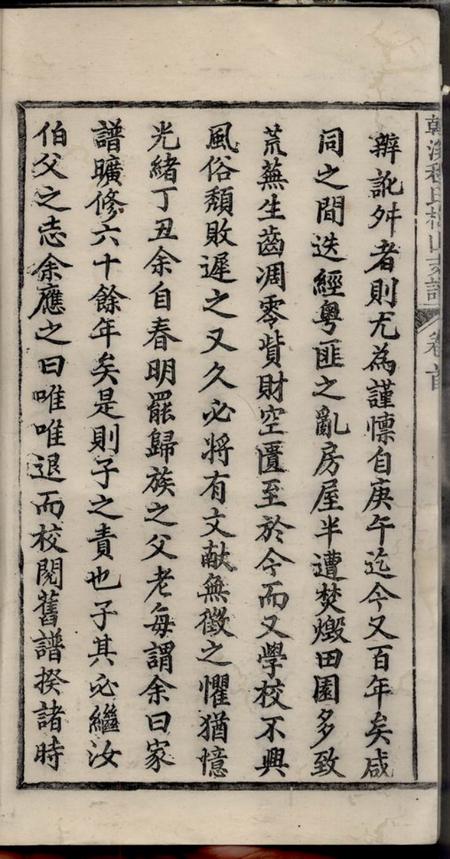 韓溪程氏梅山支譜 卷首
辨訛舛者則尤為謹懍自庚午迄今又百年矣咸
同之間迭經粵匪之亂房屋半遭焚燬田園多致
荒蕪生齒凋零貲財空匱至於今而又學校不興
風俗頹敗遲之又久必將有文献無徵之懼猶憶
光緒丁丑余自春明罷歸族之父老每謂余曰家
譜曠修六十餘年矣是則子之責也子其必繼汝
伯父之志余應之曰唯唯退而校閱舊譜揆諸時